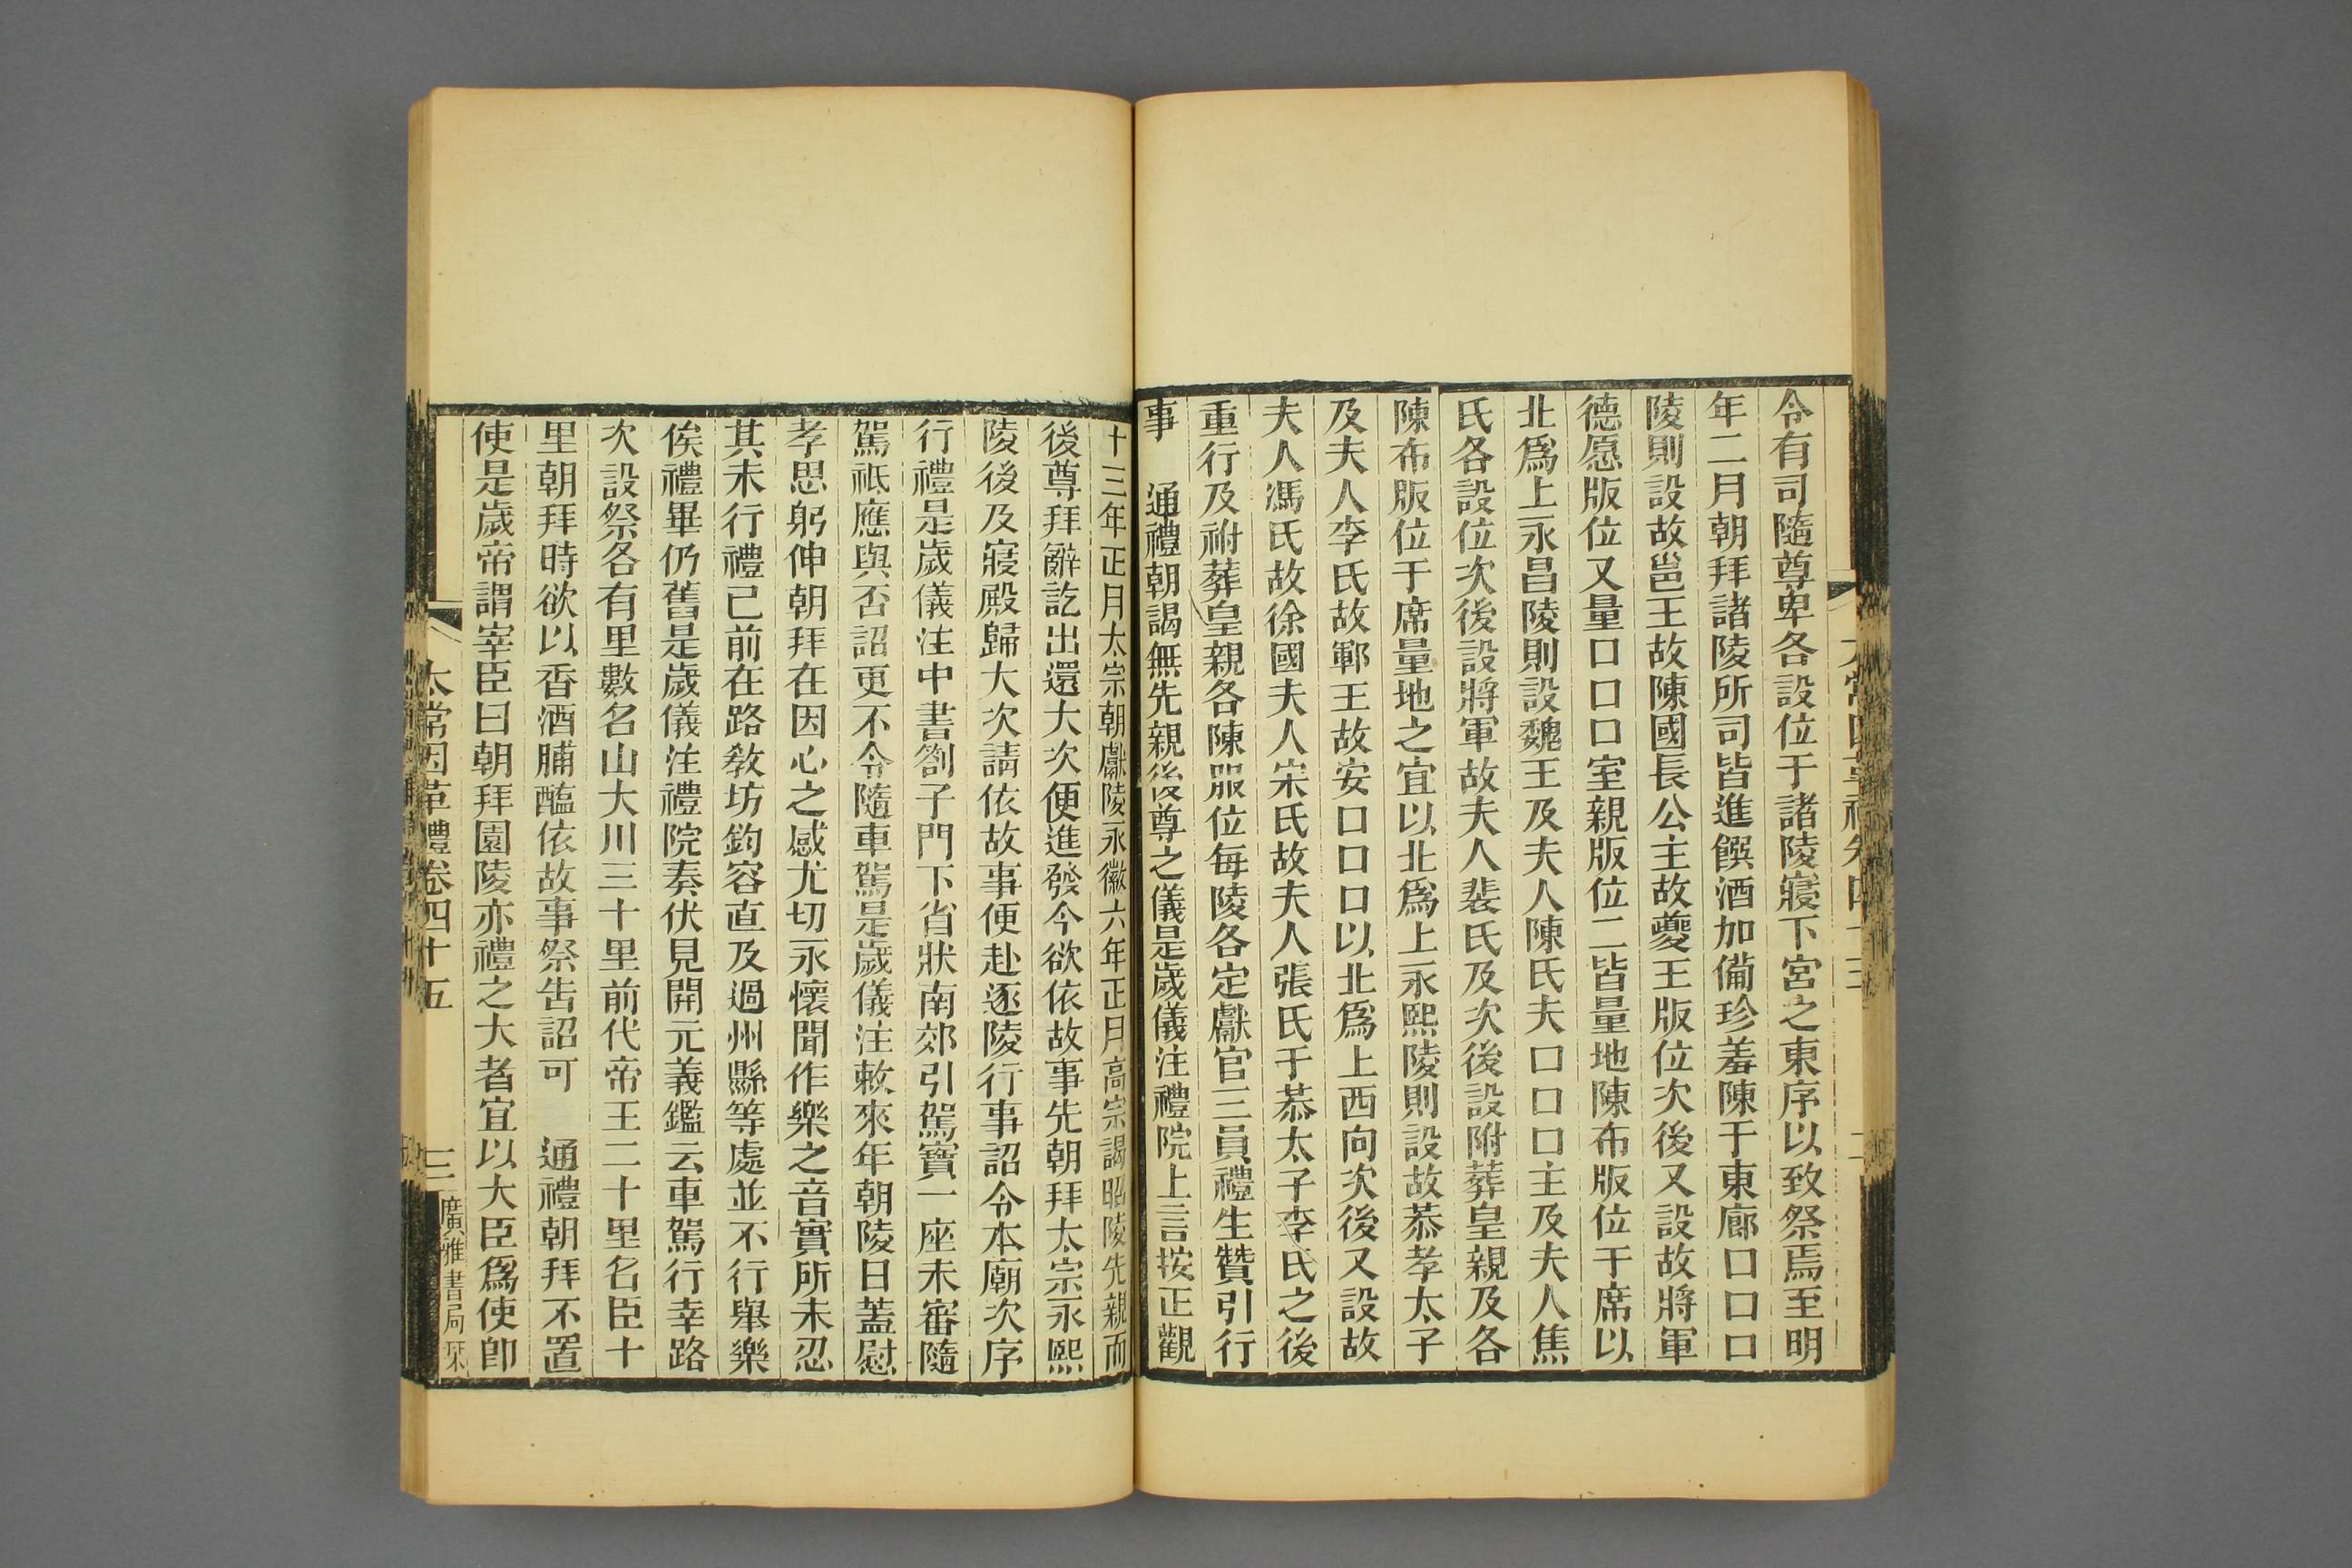 令有司隨尊卑各設位于諸陵寢下宮之東序以致祭焉至明
年二月朝拜諸陵所司皆進饌酒加備珍羞陳于東廊口口口
陵則設故邕王故陳國長公主故夔王版位次後又設故將軍
德愿版位又量口口口室親版位二皆量地陳布版位于席以
北爲上永昌陵則設魏王及夫人陳氏夫口口口主及夫人焦
氏各設位次後設將軍故夫人裴氏及次後設附葬皇親及各
陳布版位于席量地之宜以北爲上永熙陵則設故恭孝太子
及夫人李氏故鄆王故安口口口以北爲上西向次後又設故
夫人馮氏故徐國夫人宋氏故夫人張氏于恭太子李氏之後
重行及祔葬皇親各陳服位每陵各定獻官三員禮生贊引行
事　通禮朝謁無先親後尊之儀是歲儀注禮院上言按正觀
十三年正月太宗朝獻陵永徽六年正月高宗謁昭陵先親而
後尊拜辭訖出還大次便進發今欲依故事先朝拜太宗永熙
陵後及寢殿歸大次請依故事便赴逐陵行事詔令本廟次序
行禮是歲儀注中書劄子門下省狀南郊引駕寶一座未審隨
駕祗應與否詔更不令隨車駕是歲儀注敕來年朝陵日蓋慰
孝思躬伸朝拜在因心之感尤切永懷聞作樂之音實所未忍
其未行禮已前在路敎坊鈞容直及過州縣等處並不行舉樂
俟禮畢仍舊是歲儀注禮院奏伏見開元義鑑云車駕行幸路
次設祭各有里數名山大川三十里前代帝王二十里名臣十
里朝拜時欲以香酒脯醢依故事祭告詔可　通禮朝拜不置
使是歲帝謂宰臣曰朝拜園陵亦禮之大者宜以大臣爲使卽
太常因革禮卷四十五
三
廣雅書局栞